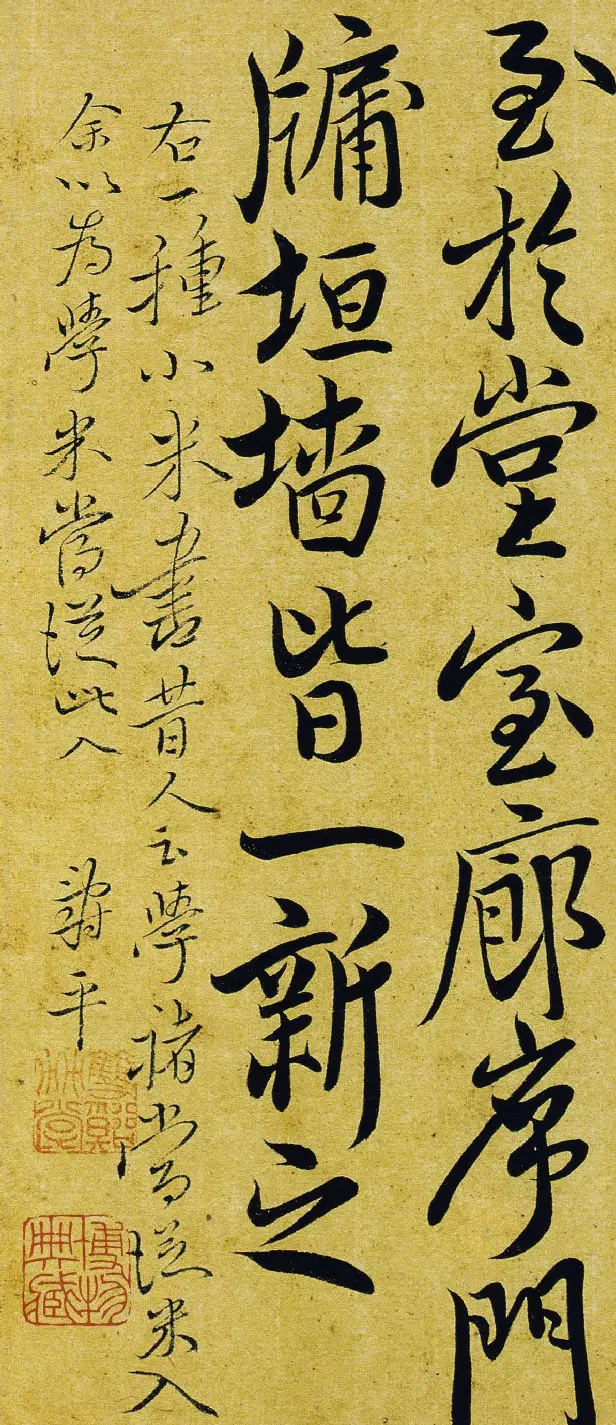 至於堂室廊席門
牖垣墙皆一新之
右一種小米書昔人云學褚當從米入
余以為學米當從此入
平
博物典藏